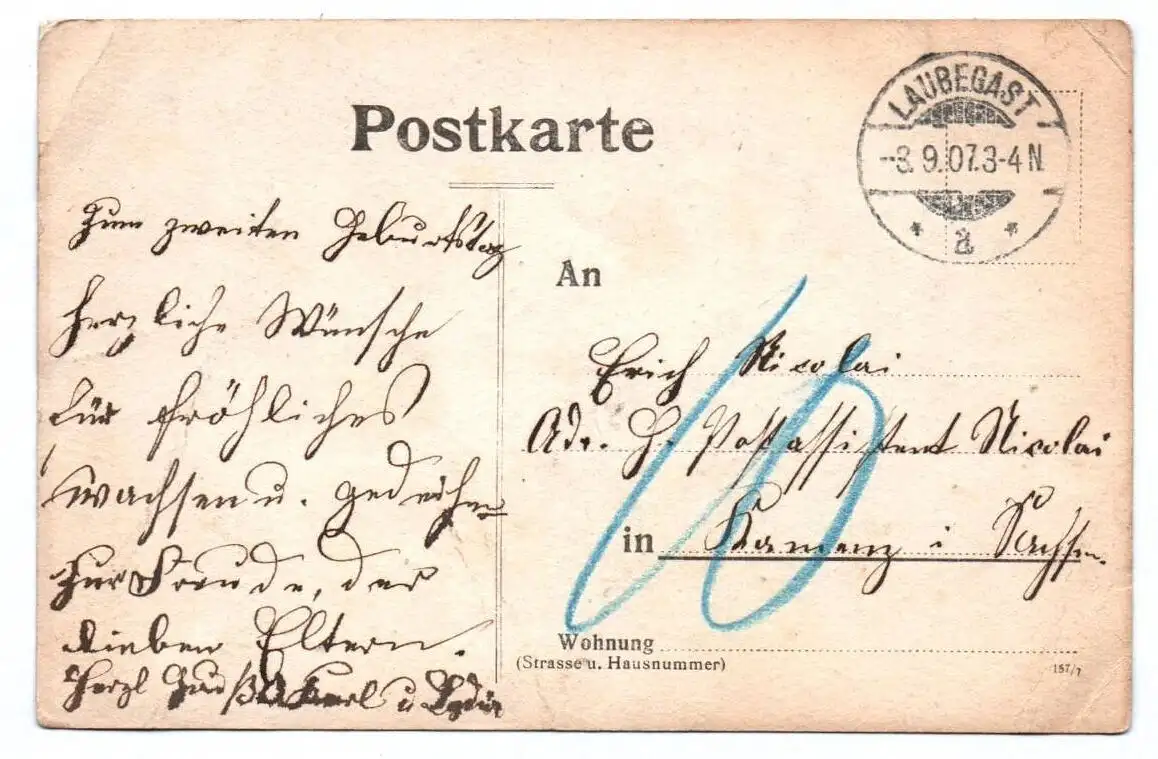 Postkarte
LAUBEGAST
-3.9.07.3-4N.
* a *
Zum zweiten Geburtstag
herzliche Wünsche
für fröhliches
wachsen u. gedeihen
zur Freude, der
lieben Eltern.
Herzl Karl u Lydia
An
Erich Nicolai
Adr. H. Postassistent Nicolai
in Kamenz i Sachsen.
10
Wohnung
(Strasse u. Hausnummer)
157/7